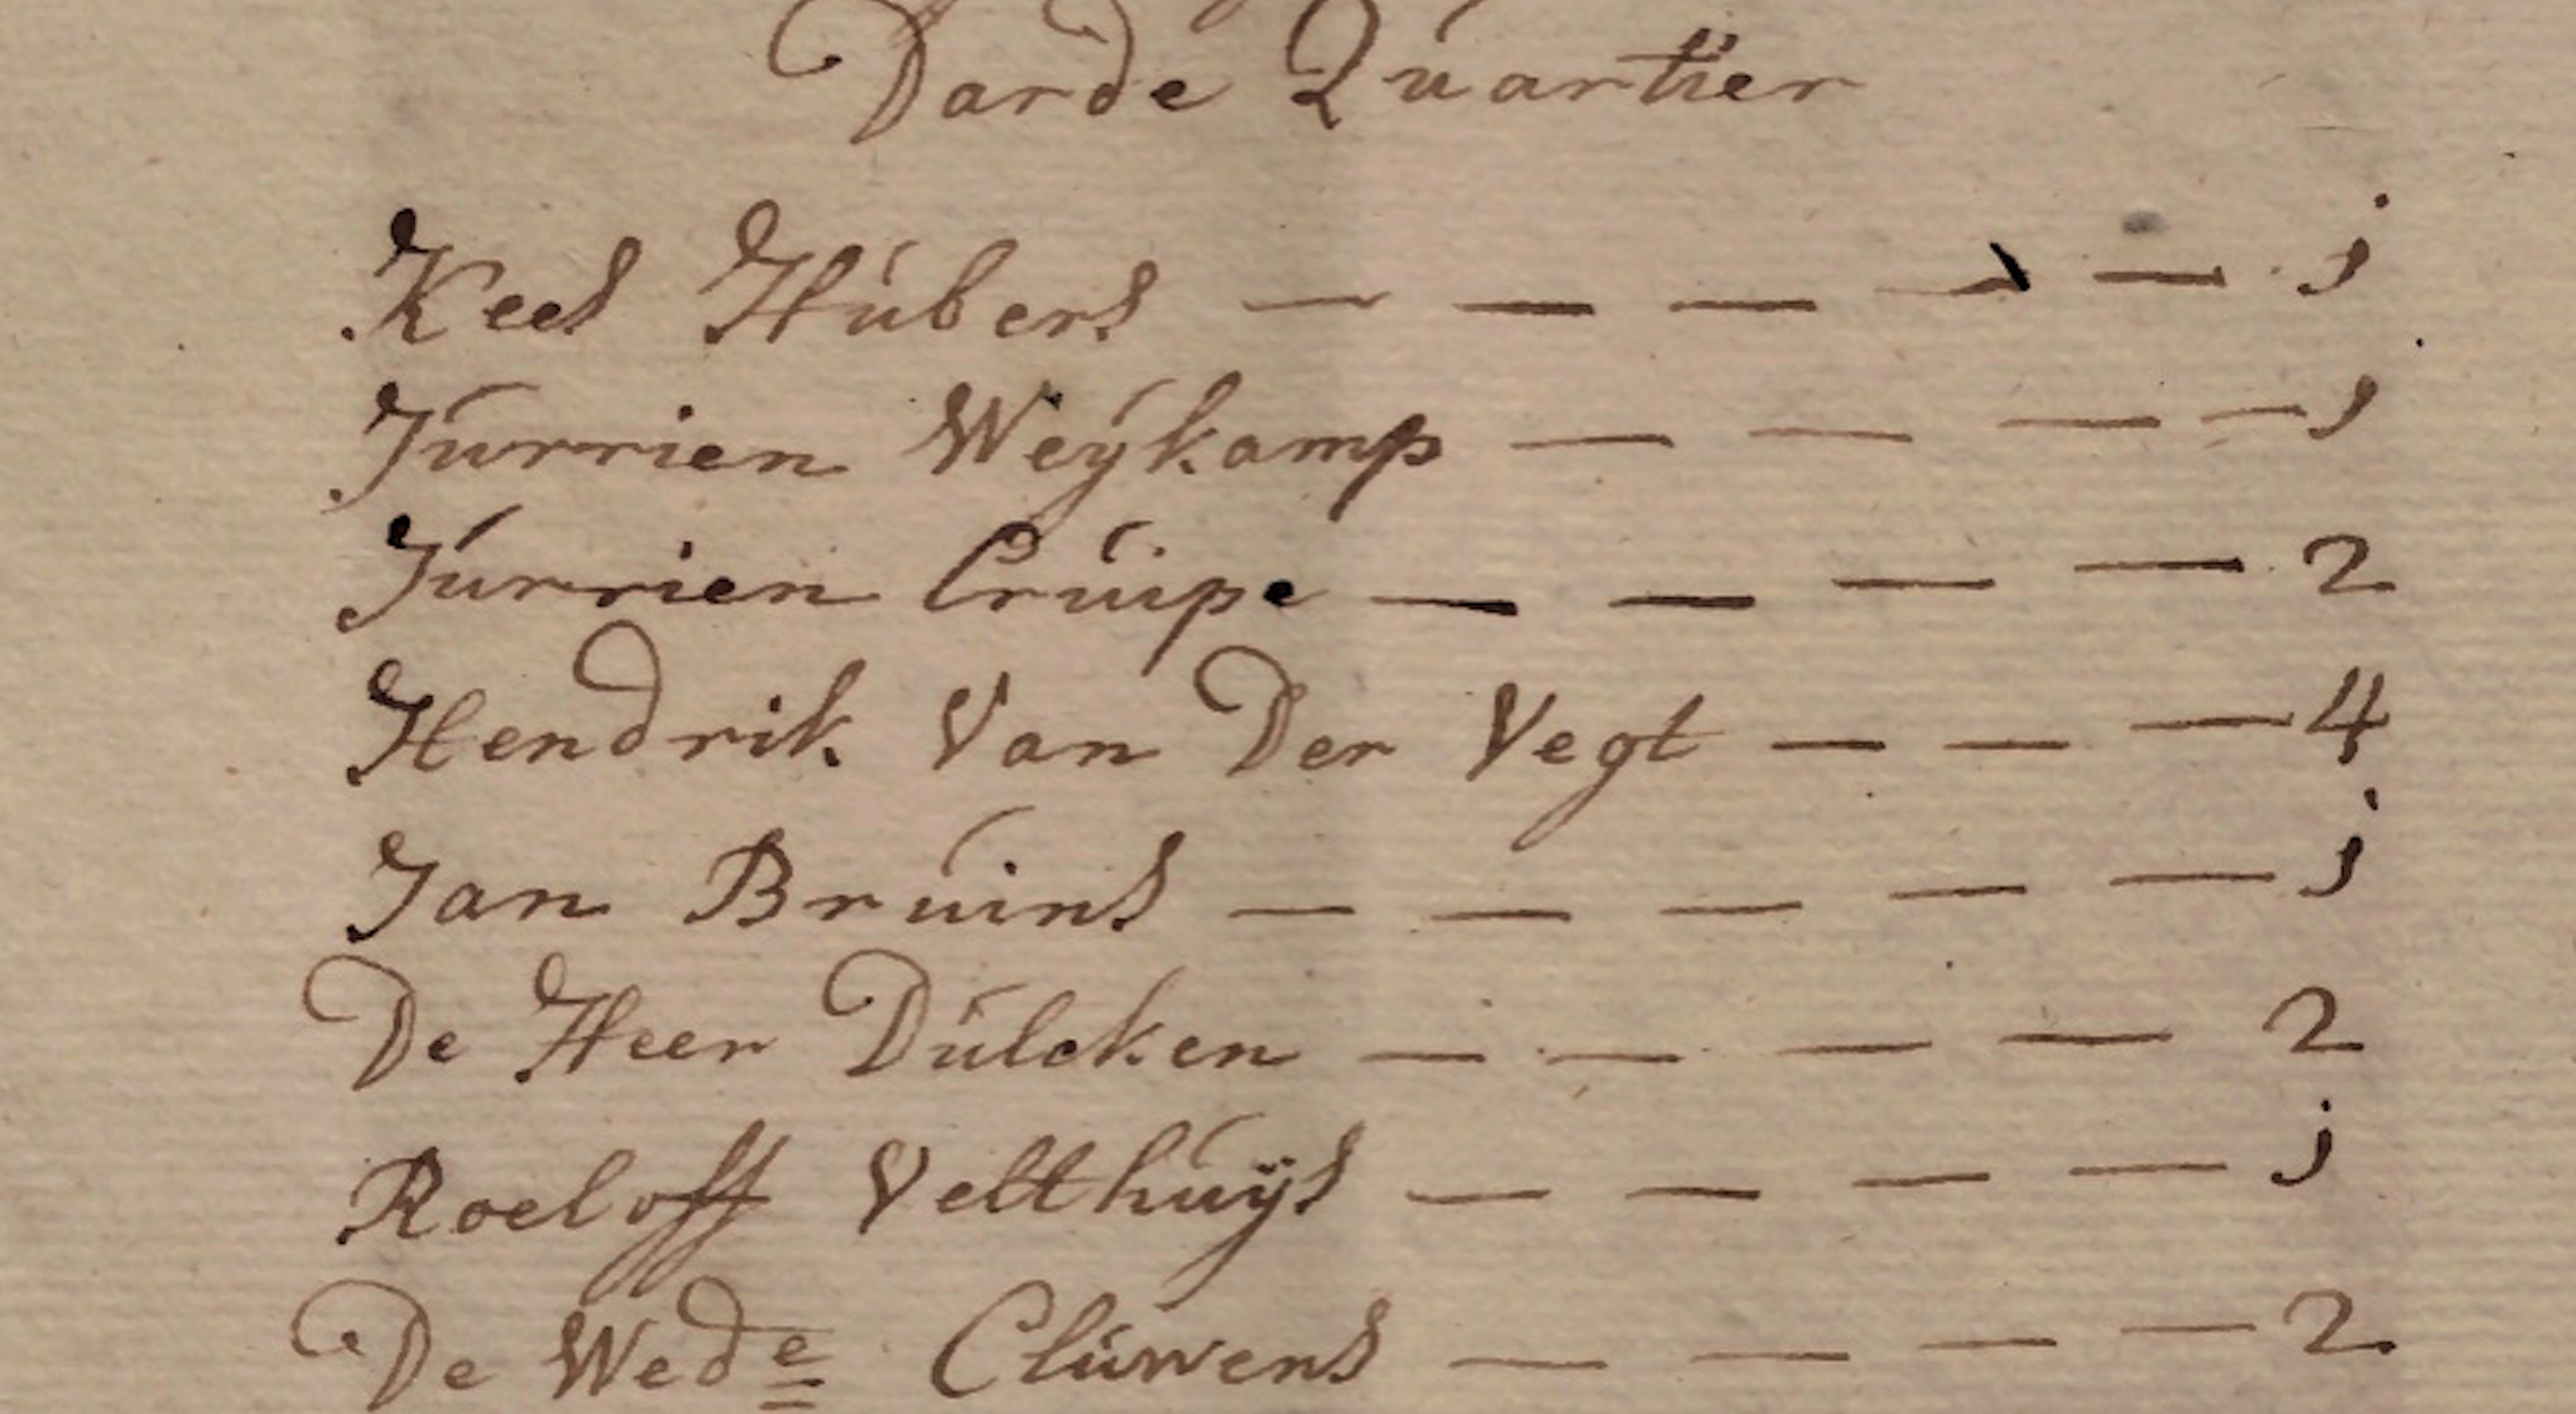 Darde Quartier
Kees Hubers — — — — — j
Jurrien Weykamp — — — — j
Jurrien Cruipe — — — — 2
Hendrik Van Der Vegt — — — 4
Jan Bruins — — — — — j
De Heer Dulcken — — — — 2
Roeloff Velthuys — — — — j
De Wede Cluwens — — — — 2